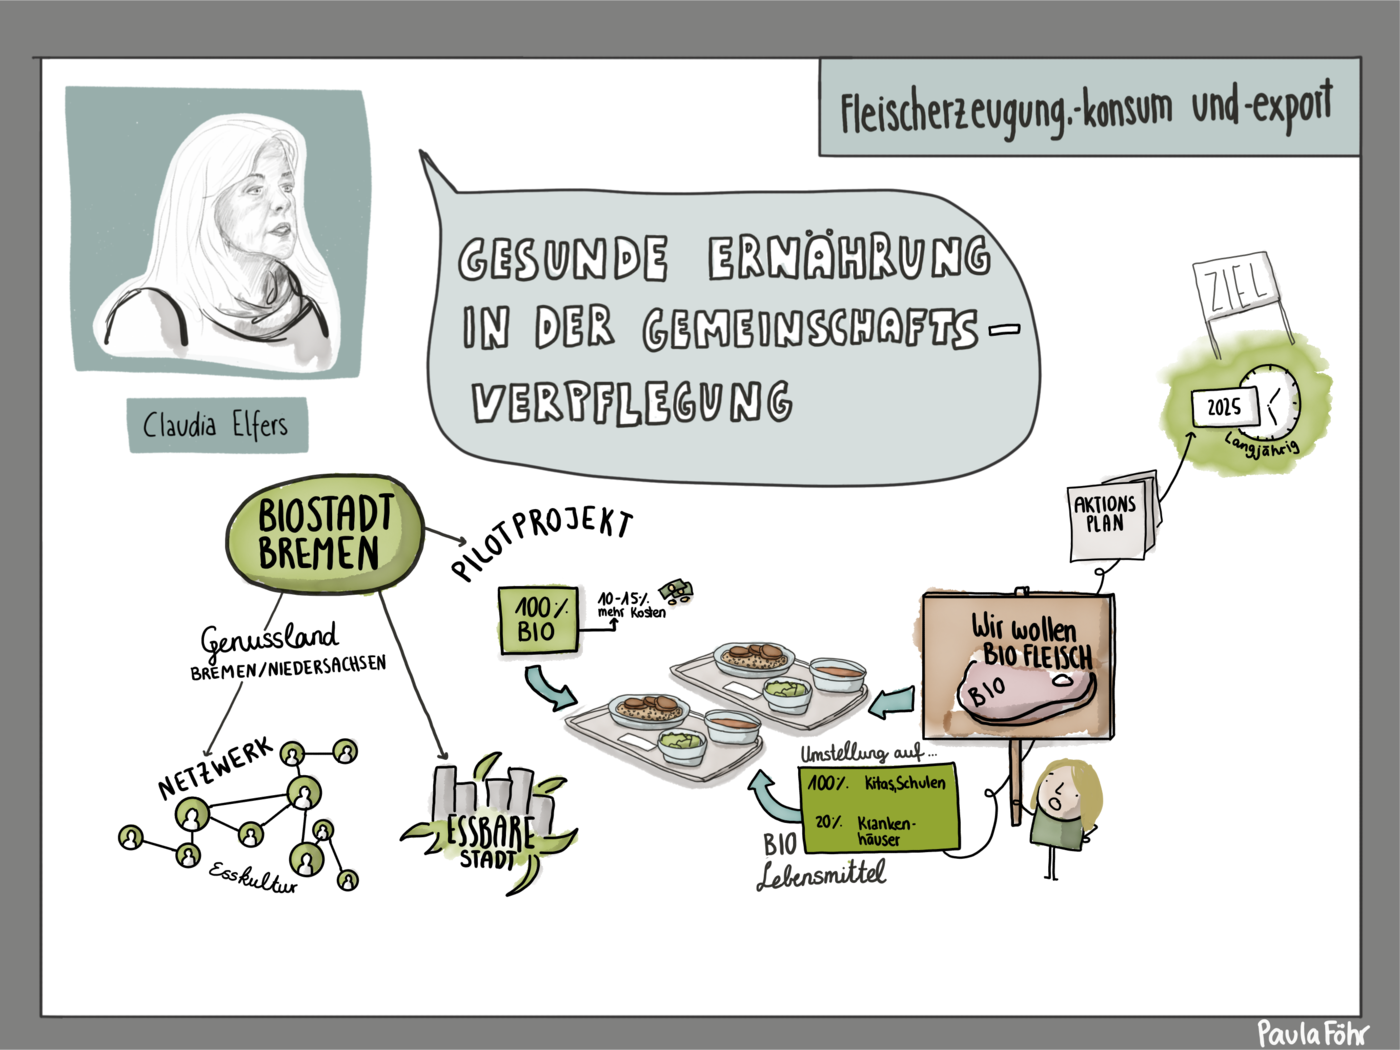 Fleischerzeugung,-konsum und -export
GESUNDE ERNÄHRUNG
IN DER GEMEINSCHAFTS-
VERPFLEGUNG
Claudia Elfers
ZIEL
2025
Langjährig
AKTIONS
PLAN
BIOSTADT
BREMEN
PILOTPROJEKT
100%
BIO
10-15%
mehr Kosten
Genussland
BREMEN/NIEDERSACHSEN
NETZWERK
Esskultur
ESSBARE
STADT
Wir wollen
BIO FLEISCH
BIO
Umstellung auf...
100% Kitas, Schulen
20% Kranken-
häuser
BIO
Lebensmittel
Paula Föhr